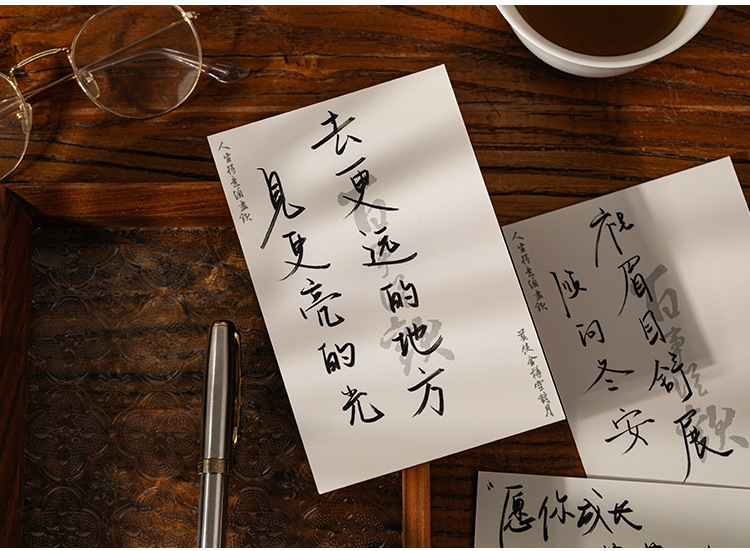 去更远的地方
見更亮的光
人生得意须盡欢
莫使金樽空對月
祝眉目舒展
顺问冬安
人生得意须盡欢
“愿你成长